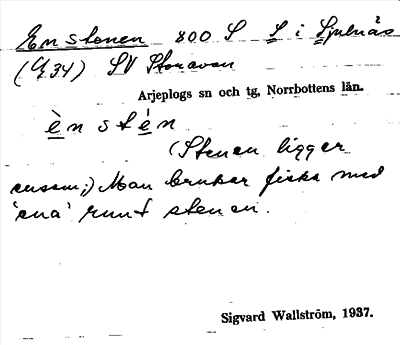 Enstenen 800 S S i Sjulnäs
(1/34) SV Storavan
Arjeplogs sn och tg, Norrbottens län.
ènstén
(Stenen ligger
ensam;) Man brukar fiska med
'ena' runt stenen.
Sigvard Wallström, 1937.